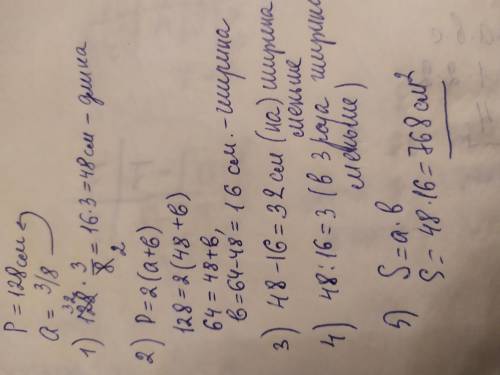 P = 128 см
a = 3/8
1) 128 · 3/8 = 16 · 3 = 48 см - длина
32
2
2) P = 2(a+в)
128 = 2(48 + в)
64 = 48 + в,
в = 64 - 48 = 16 см. - ширина
3) 48 - 16 = 32 см (на) ширина
меньше
4) 48 : 16 = 3 (в 3 раза ширина
меньше)
5) S = a · в
S = 48 · 16 = 768 см²